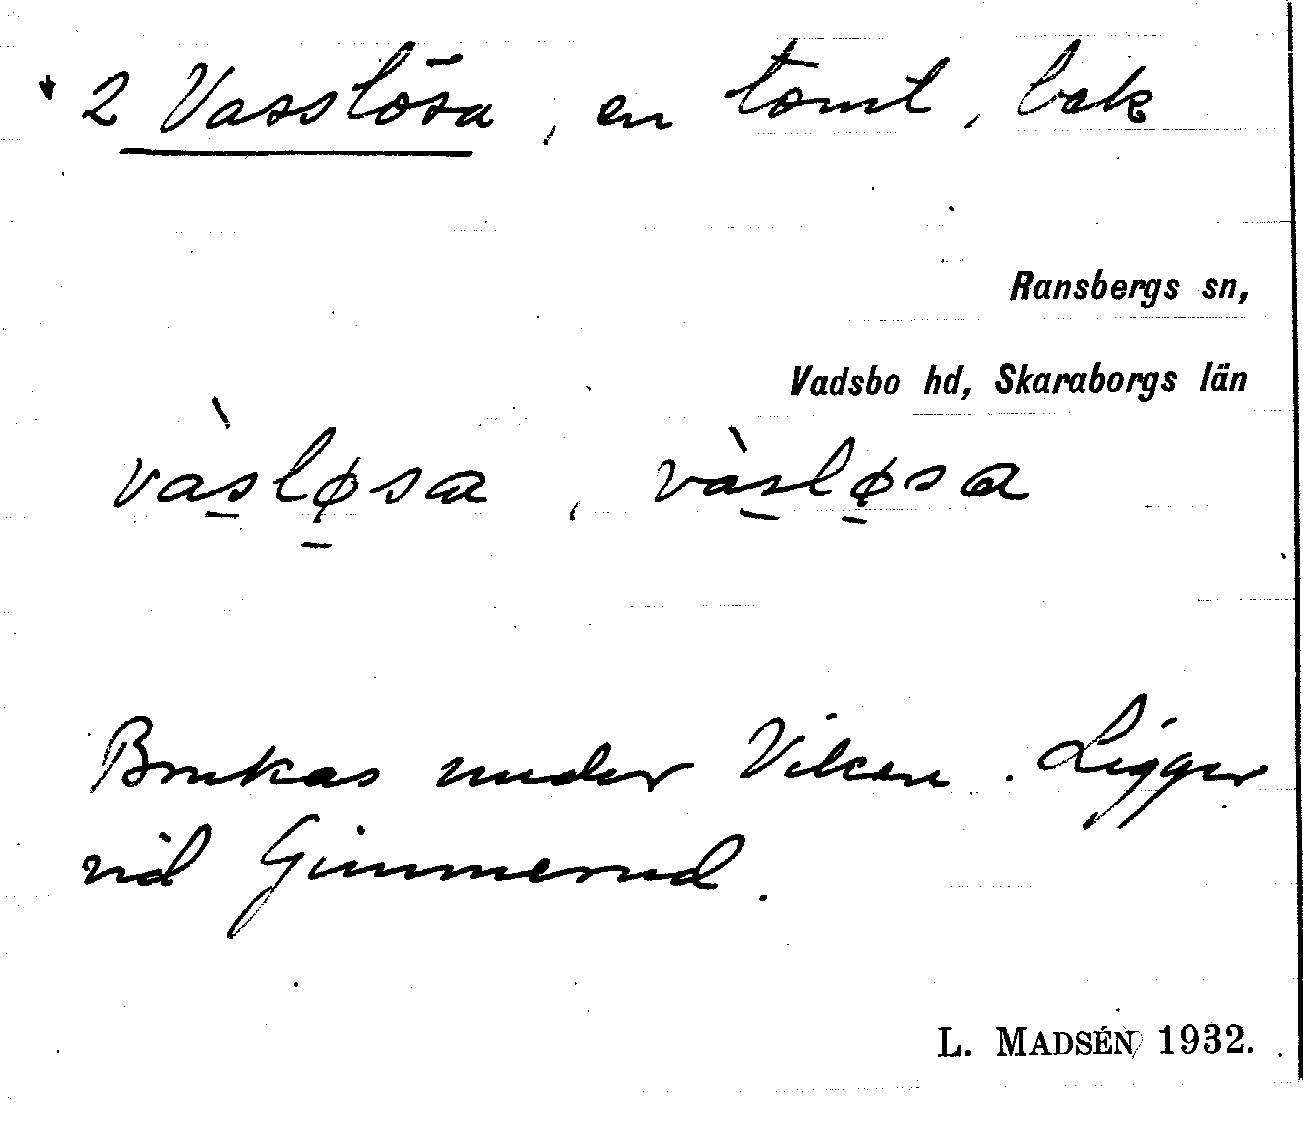 2 Vasslösa, en tomt, bak
Ransbergs sn,
Vadsbo hd, Skaraborgs län
vàs̱lø̱sa, vàs̱lø̱sa
Brukas under Viken. Ligger
vid Gimmerud.
L. MADSÉN 1932.